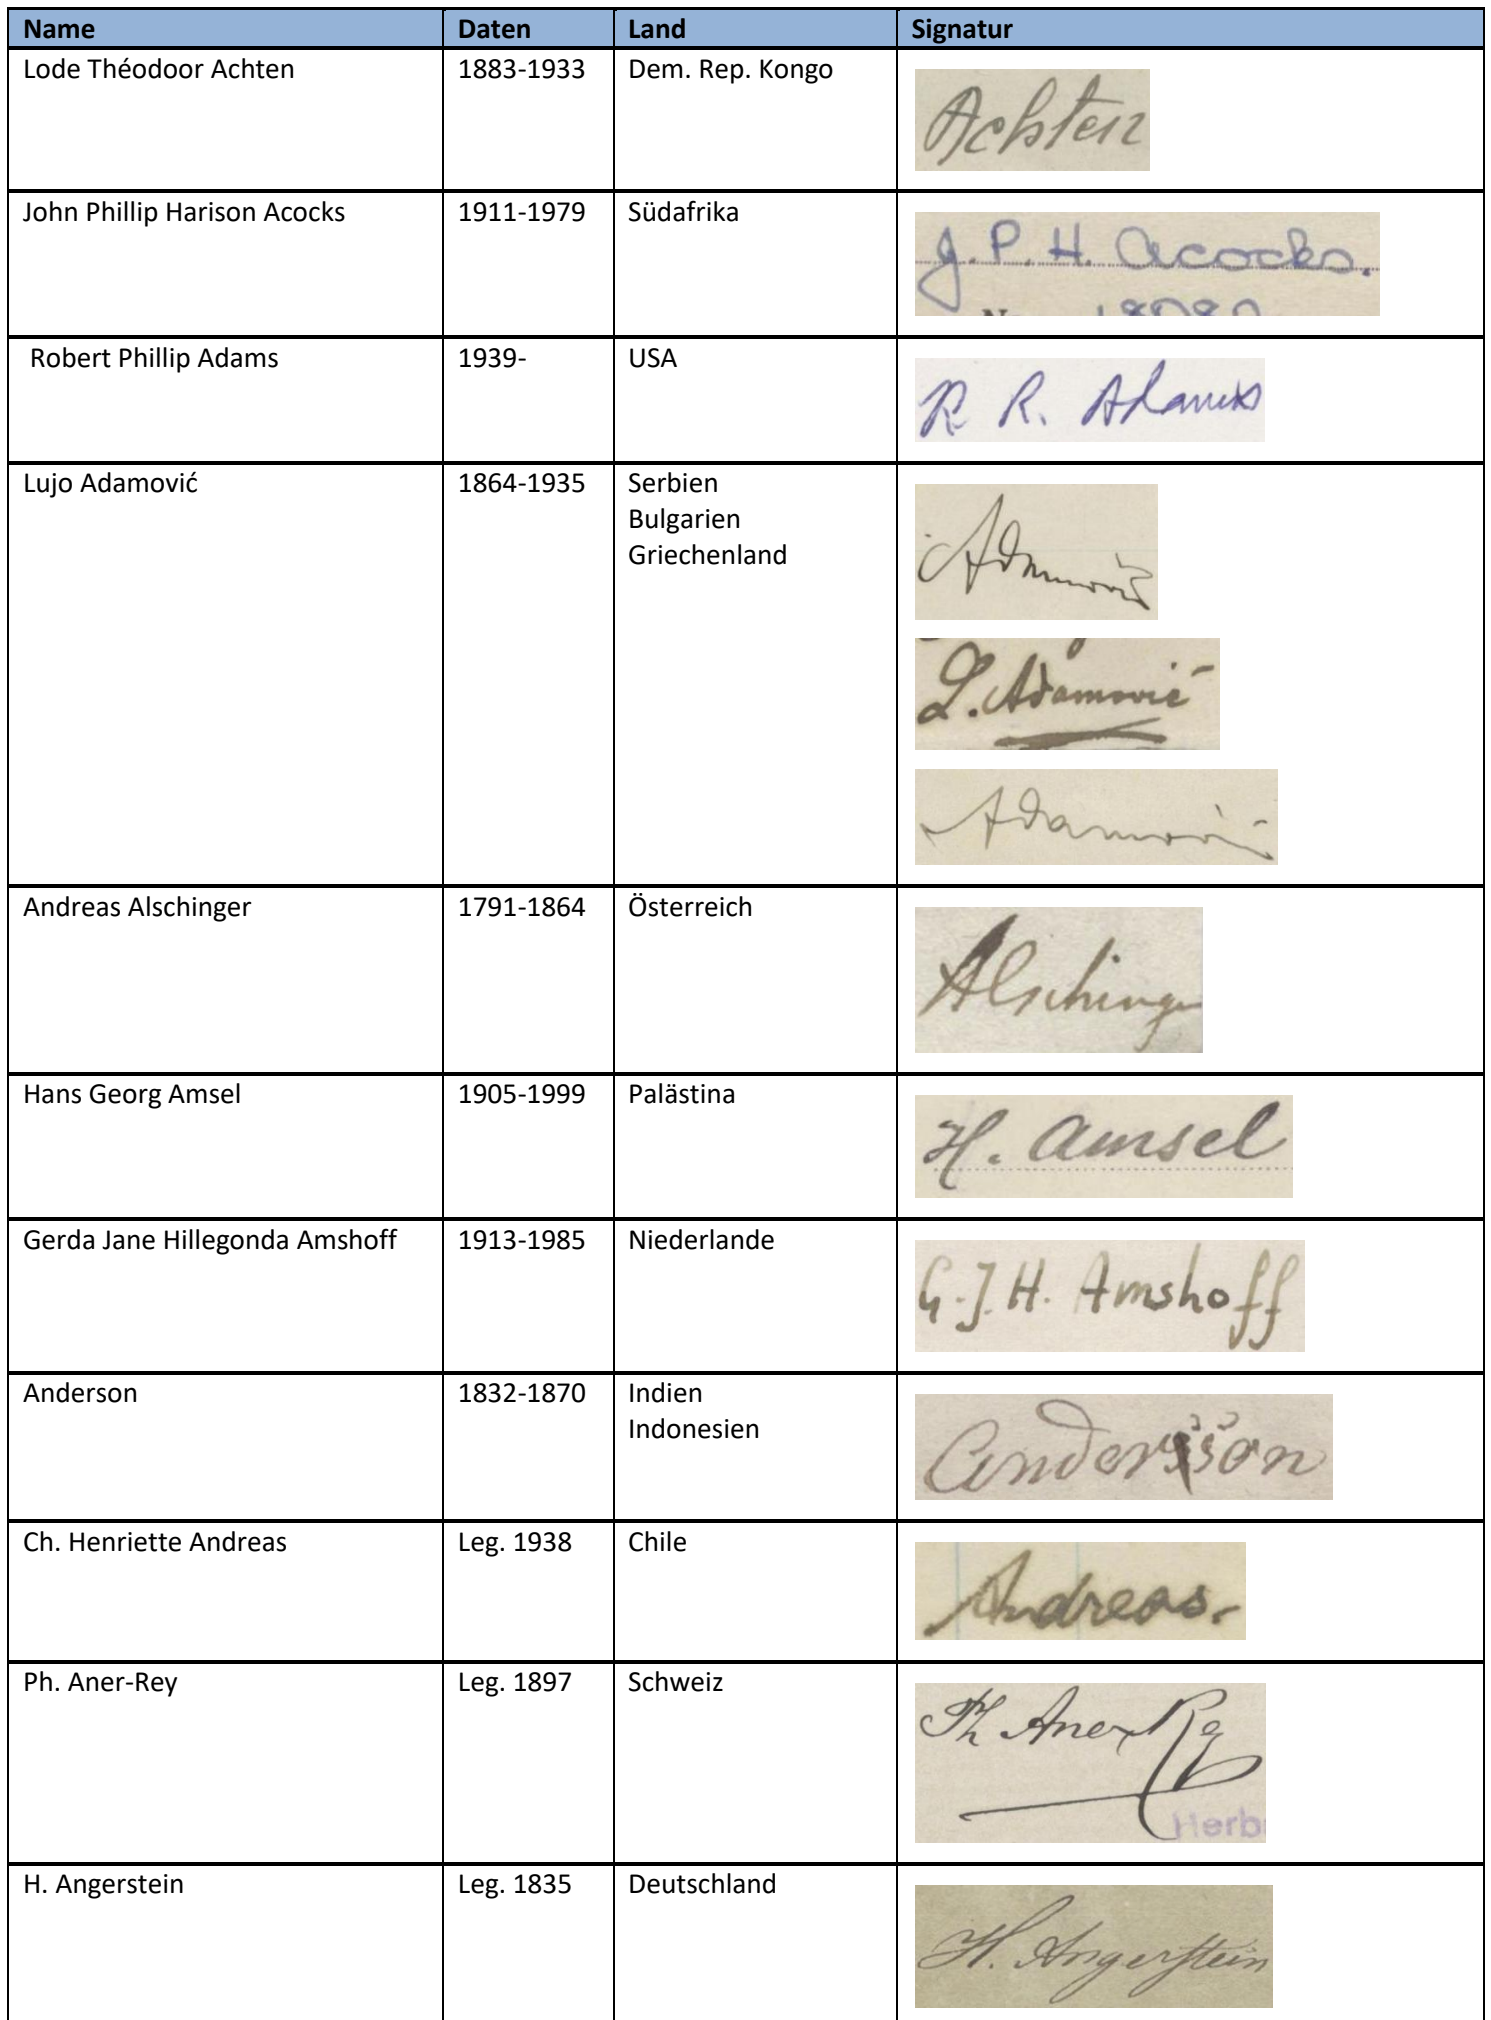 Name Daten Land Signatur
Lode Théodoor Achten 1883-1933 Dem. Rep. Kongo
Achten
John Phillip Harison Acocks 1911-1979 Südafrika
J. P. H. Acocks.
Robert Phillip Adams 1939- USA
R. R. Adams
Lujo Adamović 1864-1935 Serbien
Bulgarien
Griechenland
Adamović
L. Adamović
Adamović
Andreas Alschinger 1791-1864 Österreich
Alschinger
Hans Georg Amsel 1905-1999 Palästina
H. Amsel
Gerda Jane Hillegonda Amshoff 1913-1985 Niederlande
G.J.H. Amshoff
Anderson 1832-1870 Indien
Indonesien
Anderson
Ch. Henriette Andreas Leg. 1938 Chile
Andreas.
Ph. Aner-Rey Leg. 1897 Schweiz
Ph Aner-Rey
Herb
H. Angerstein Leg. 1835 Deutschland
H. Angerstein